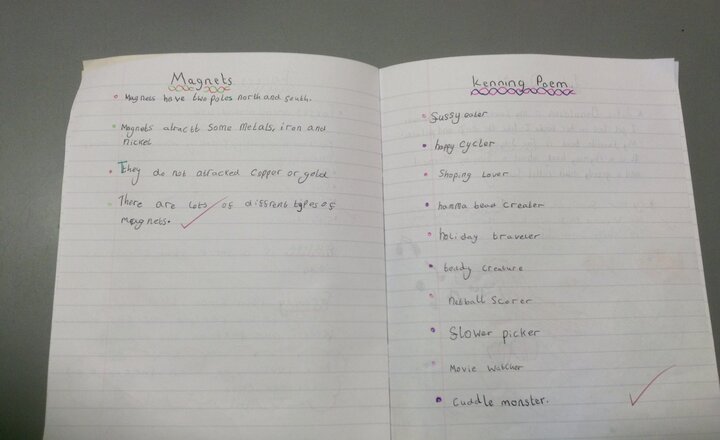 Magnets
Magnets have two poles north and south.
Magnets atractt some metals, iron and
nickel
They do not atracked Copper or gold
There are lots of different types of
magnets.
Kenning Poem
fussy eater
happy cycler
Shoping Lover
hamma bead Creater
holiday traveler
beady creature
Netball Scorer
flower picker
Movie watcher
Cuddle monster.